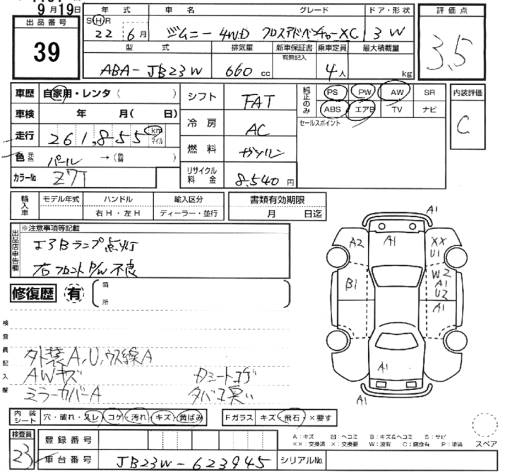 9月19日
出品番号
39
年式 車名 グレード ドア・形状
SHR 22年 6月 ジムニー 4WD クロスアドベンチャーXC 3W
型式 排気量 新車保証書 乗車定員 最大積載量
有無記入
ABA-JB23W 660cc 4人 kg
評価点
3.5
車歴 自家用・レンタ( )
車検 年 月( 日)
走行 261,855 km マイル
色 パール →(替)
カラーNo Z7T
シフト FAT
冷房 AC
燃料 ガソリン
リサイクル料金 8,540円
純正のみ PS PW AW SR
ABS エアB TV ナビ
セールスポイント
内装評価
C
輸入車 モデル年式 ハンドル 輸入区分
右H・左H ディーラー・並行
書類有効期限
月 日迄
出品店申告欄
※注意事項等記載
エアBランプ点灯
右フロントP/W不良
修復歴 有 箇所
検査員記入欄
外装A,U,ウス線A
AWキズ
ミラーカバーA
カミートコゲ
ダバコ臭い
A1
A2 A1 XX
U1
B1 W2
A1
U2
A1
A1
内装シート 穴・破れ・スレ コゲ 汚れ キズ 黄ばみ
Fガラス キズ 飛石 ×要す
A:キズ U:凹ミ B:キズ&ヘコミ S:サビ
XX:交換済 X:要交換 W:波有 C:腐食有 P:塗装
スペア
検査員
23
登録番号
車台番号 JB23W-623945 シリアルNo.